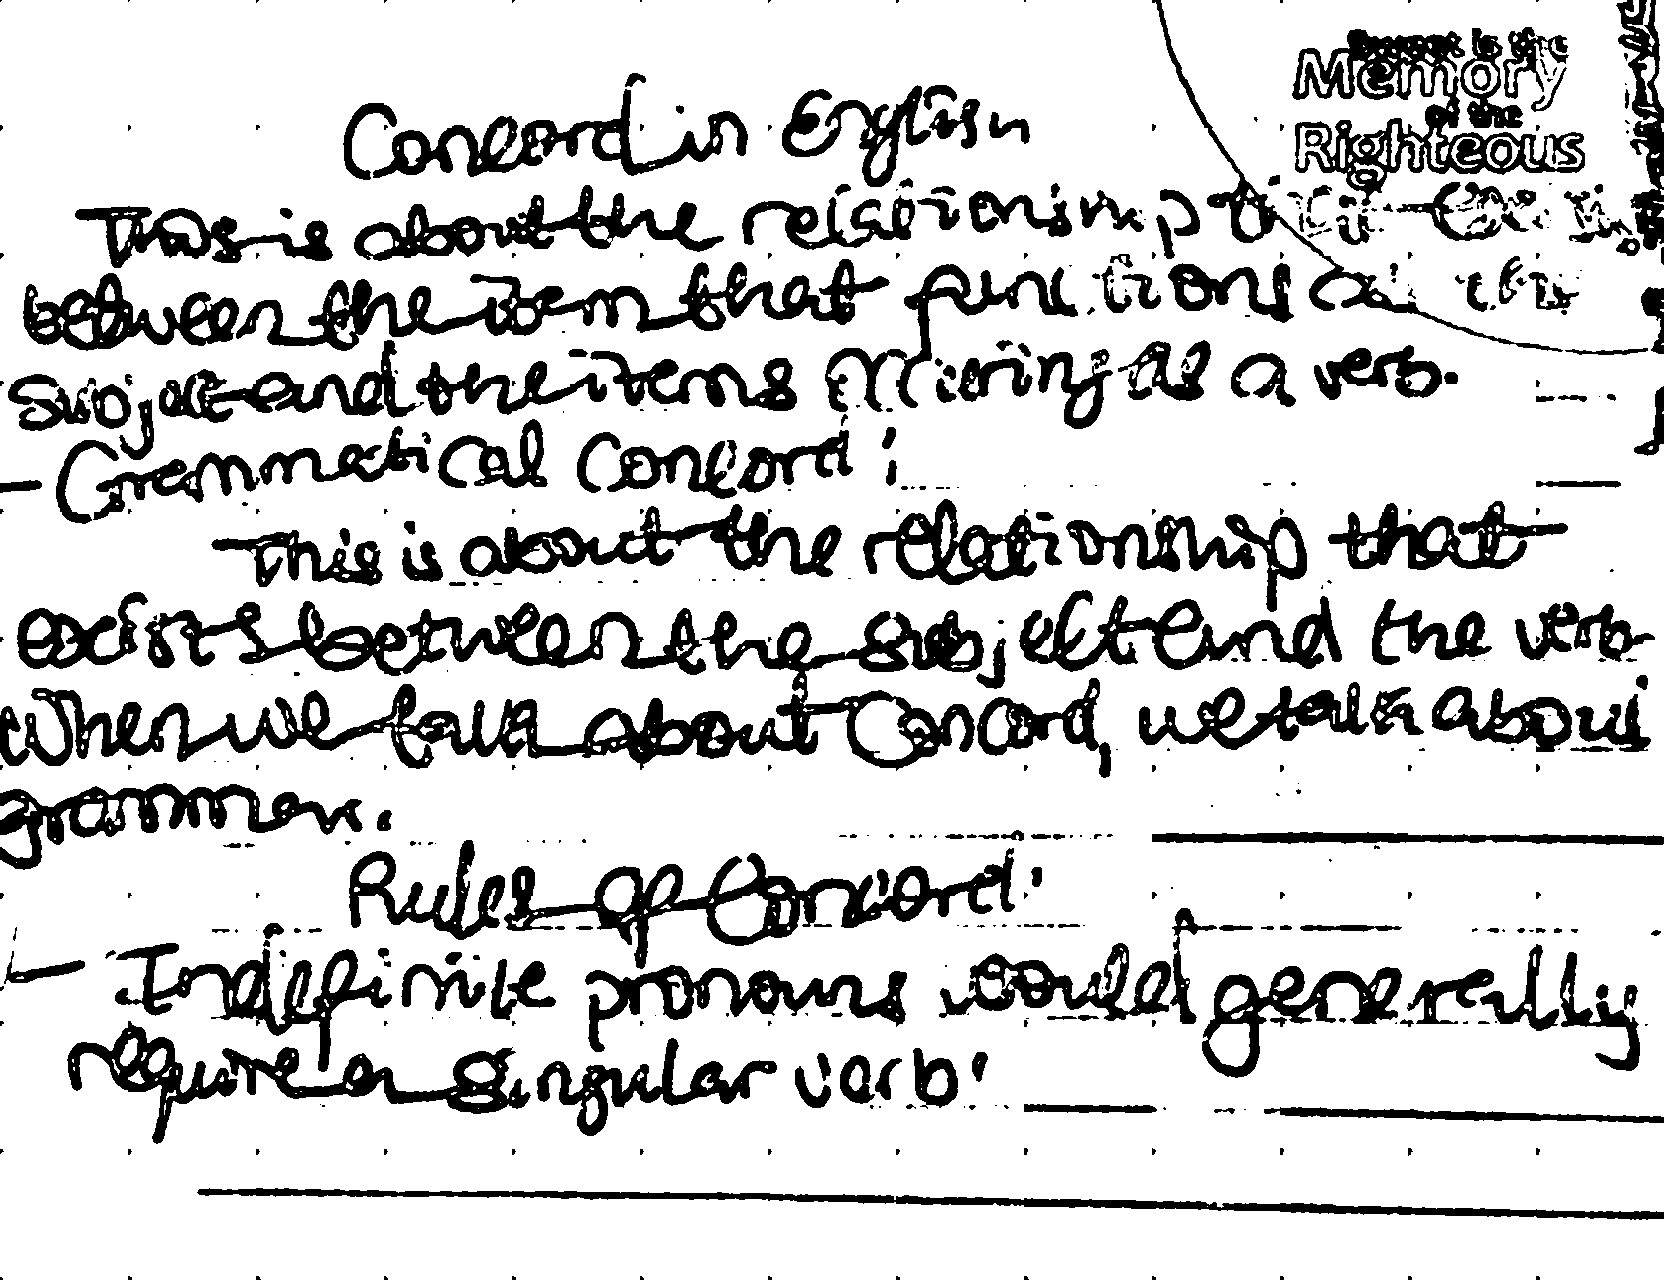 Sweet is the
Memory
of the
Righteous
Concord in English
This is about the relationship that exists
between the item that functions as the
Subject and the items occuring as a verb.
- Grammatical Concord:
This is about the relationship that
exists between the subject and the verb
When we talk about Concord, we talk about
grammar.
Rules of Concord:
- Indefinite pronouns would generally
require a singular verb.